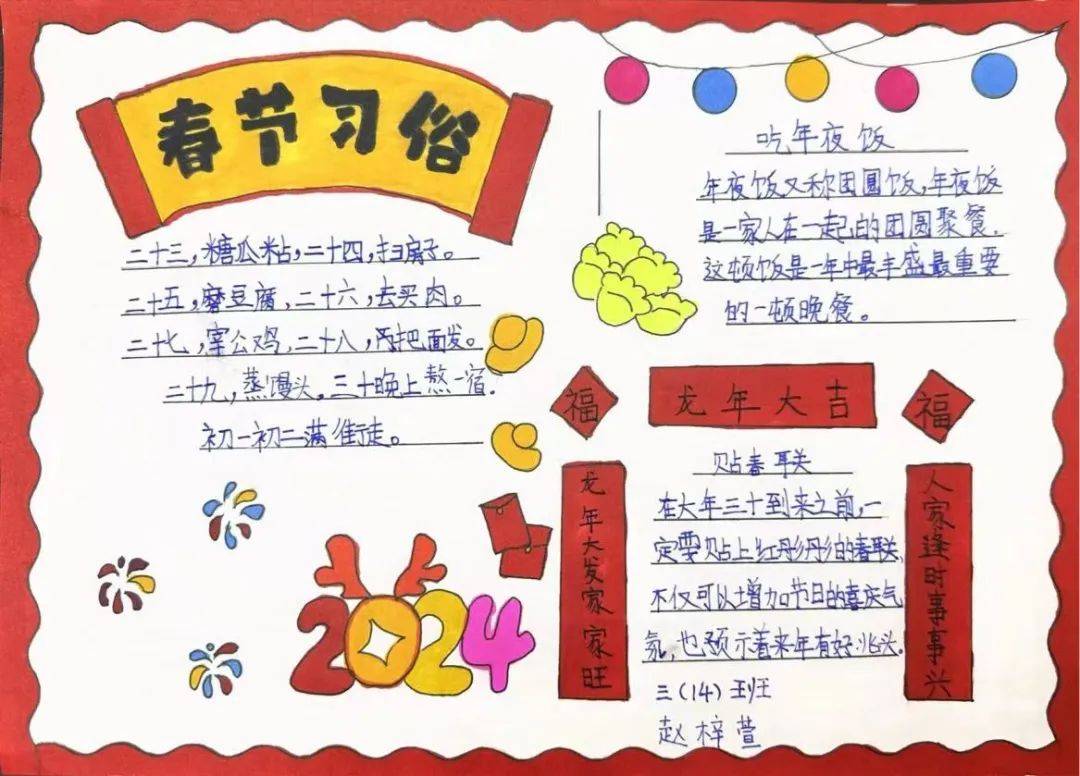 春节习俗
二十三，糖瓜粘，二十四，扫房子。
二十五，磨豆腐，二十六，去买肉。
二十七，宰公鸡，二十八，把面发。
二十九，蒸馒头，三十晚上熬一宿.
初一初二满街走。
2024
吃年夜饭
年夜饭又称团圆饭，年夜饭
是一家人在一起的团圆聚餐，
这顿饭是一年中最丰盛最重要
的一顿晚餐。
福
龙年大吉
福
龙年大发家家旺
贴春联
在大年三十到来之前，一
定要贴上红彤彤的春联，
不仅可以增加节日的喜庆气
氛，也预示着来年有好兆头。
三（14）班
赵梓萱
人家逢时事事兴